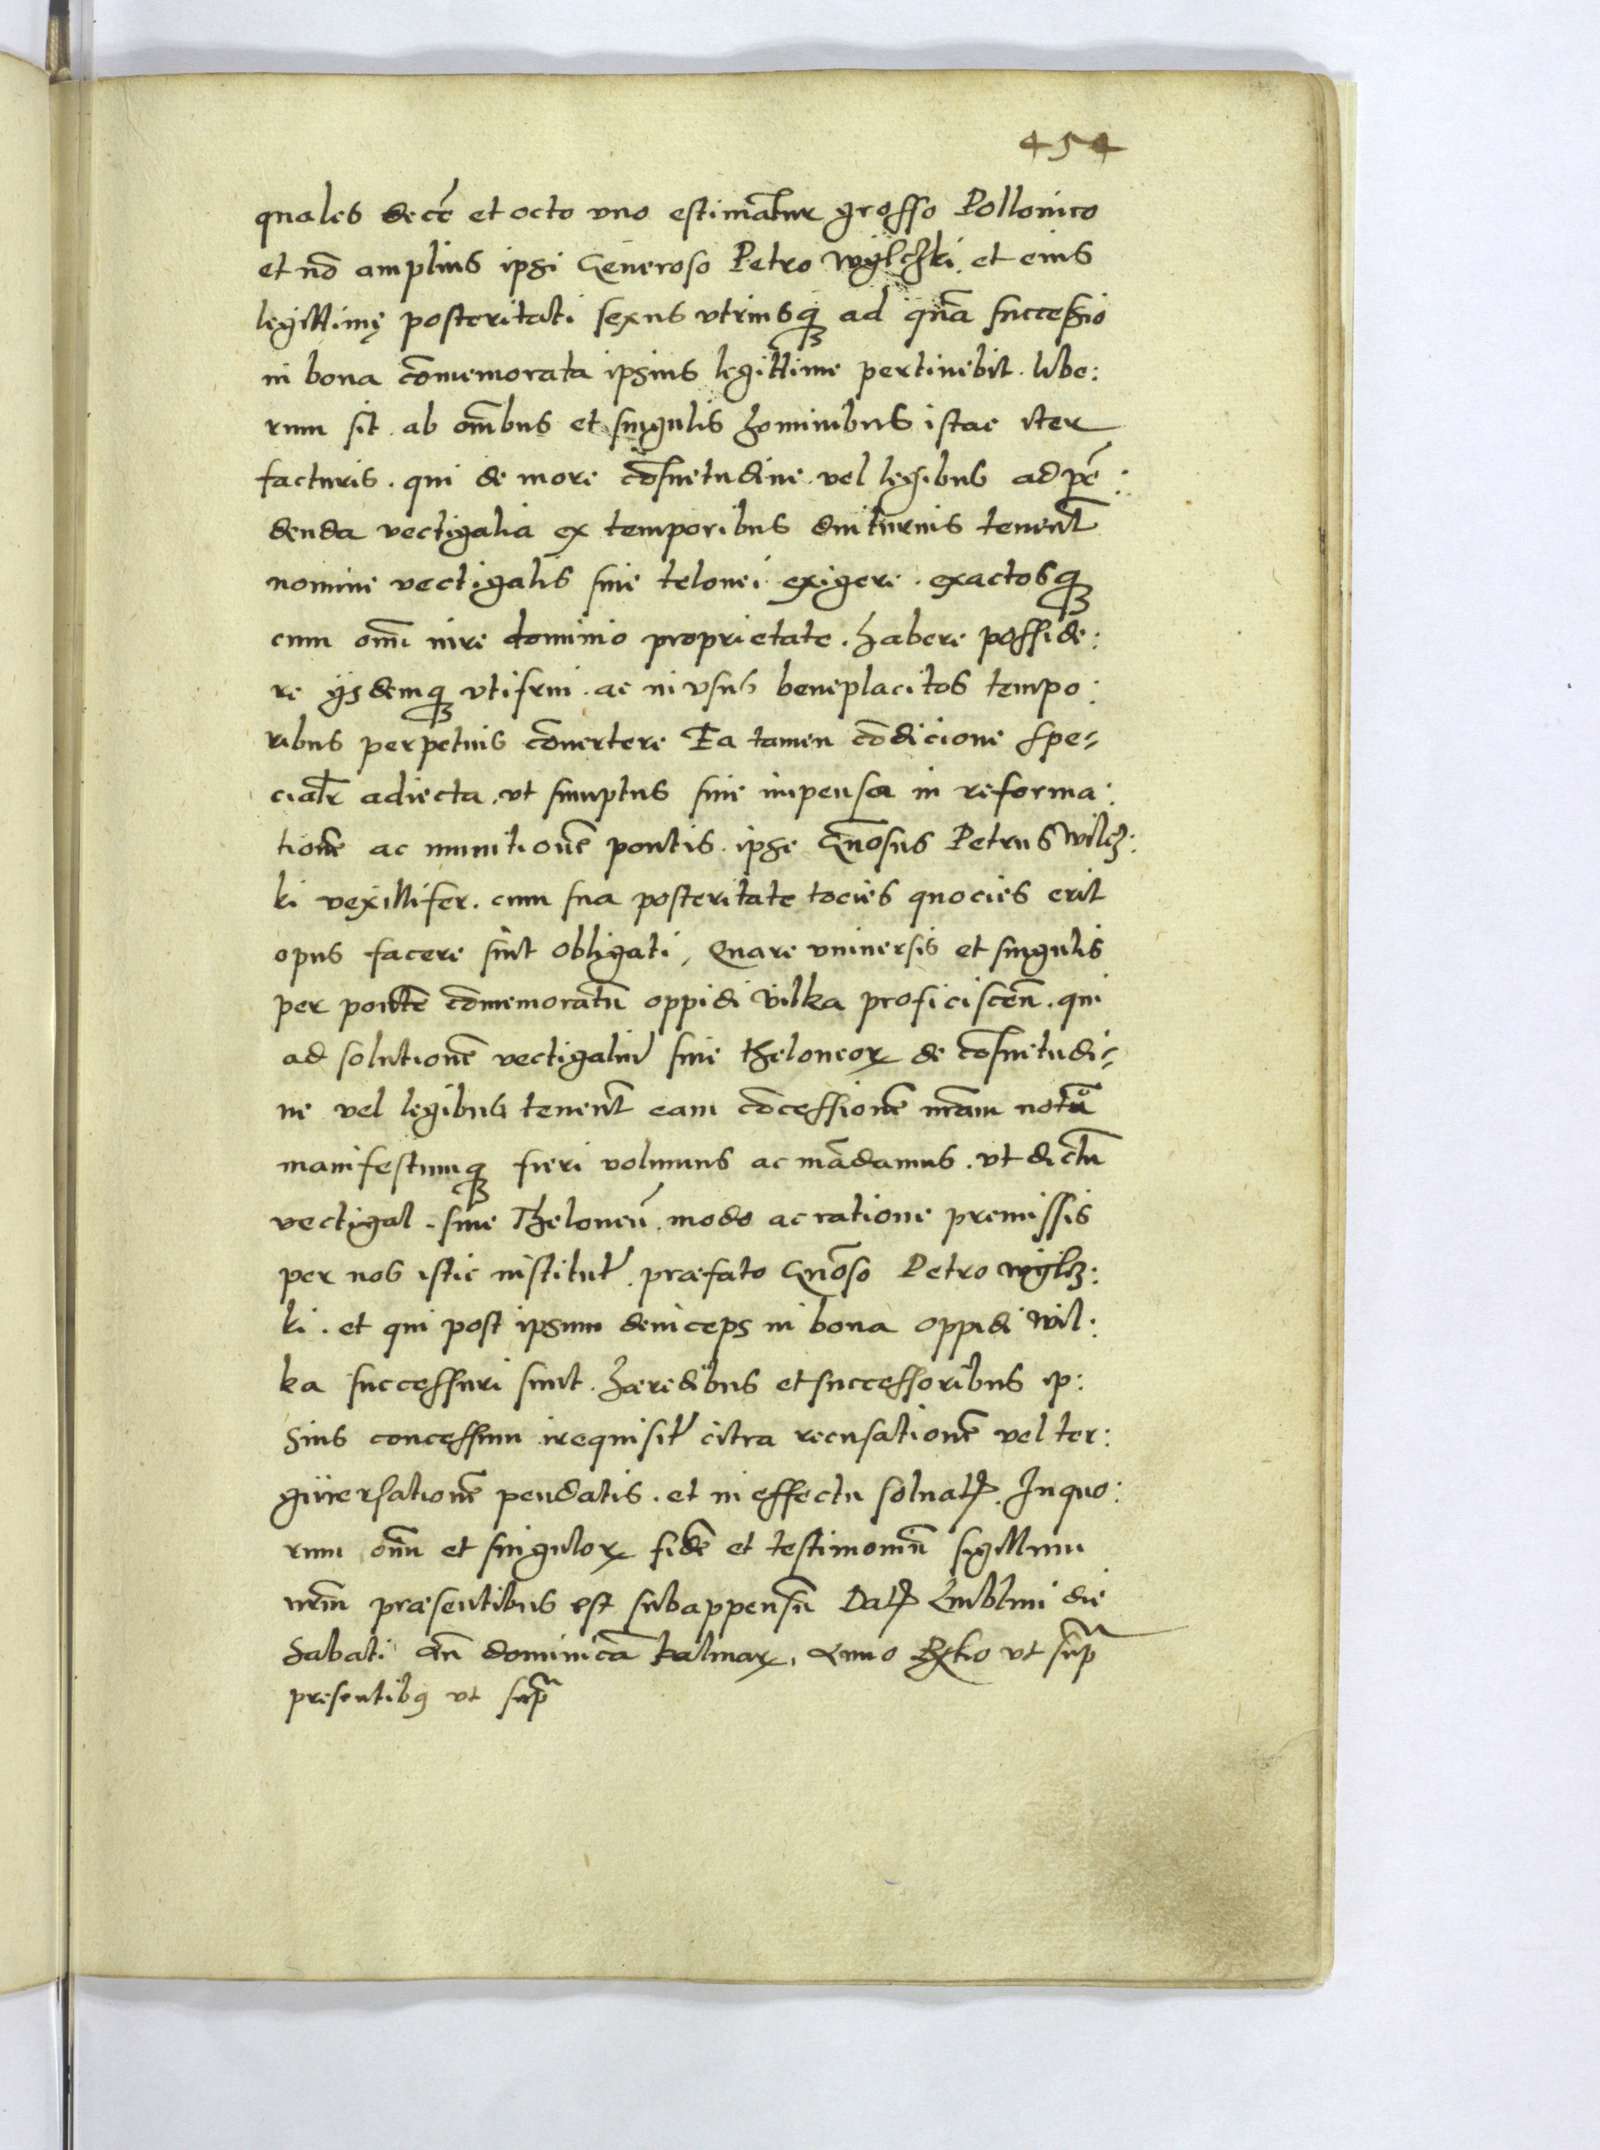 454
quales decē et octo vno estimātur grosso Pollonico
et nō amplius ipsi Generoso Petro Wylchki. et eius
legittimę posteritati sexus vtriusq̄ ad quā successio
in bona cōmemorata ipsius legittime pertinebit. libe:
rum sit. ab om̄ibus et singulis hominibus istac iter
facturis. qui de more cōsuetudine vel legibus ad pē:
denda vectigalia ex temporibus diuturnis tenent̄
nomine vectigalis siue telonei exigere. exactosq̄
cum om̄i iure dominio proprietate. habere posside:
re ijsdemq̄ vtifrui. ac in vsus beneplacitos tempo:
ribus perpetuis cōuertere Ea tamen cōdicione spe-
cialr̄ adiecta. vt sumptus siue impensa in reforma:
tionē ac munitionē pontis. ipse Gn̄osus Petrus Wilcz:
ki vexillifer. cum sua posteritate tocies quocies erit
opus facere sint obligati, Quare vniuersis et singulis
per pontē cōmemoratū oppidi Vilka proficiscen̄. qui
ad solutionē vectigaliū siue theloneorꝝ de cōsuetudi-
ne vel legibus tenent̄ eam cōcessionē nr̄am notā
manifestumq̄ fieri volumus ac mādamus. vt dictū
vectigal. siue Theloneū. modo ac ratione premissis
per nos istic institutū. præfato Gn̄oso Petro Wylcz:
ki. et qui post ipsum deinceps in bona oppidi Wil:
ka successuri sunt. hæredibus et successoribus ip:
sius concessum irequisitū citra recusationē vel ter:
giuersationē pendatis. et in effectu soluatꝭ. In quo:
rum om̄iū et singulorꝝ fidē et testimoniū sigillum
nr̄m præsentibus est subappensū Datꝭ Lublini die
Sabati an̄ dominicā Palmarꝝ, Anno ut sup̄
presentibꝰ vt sup̄